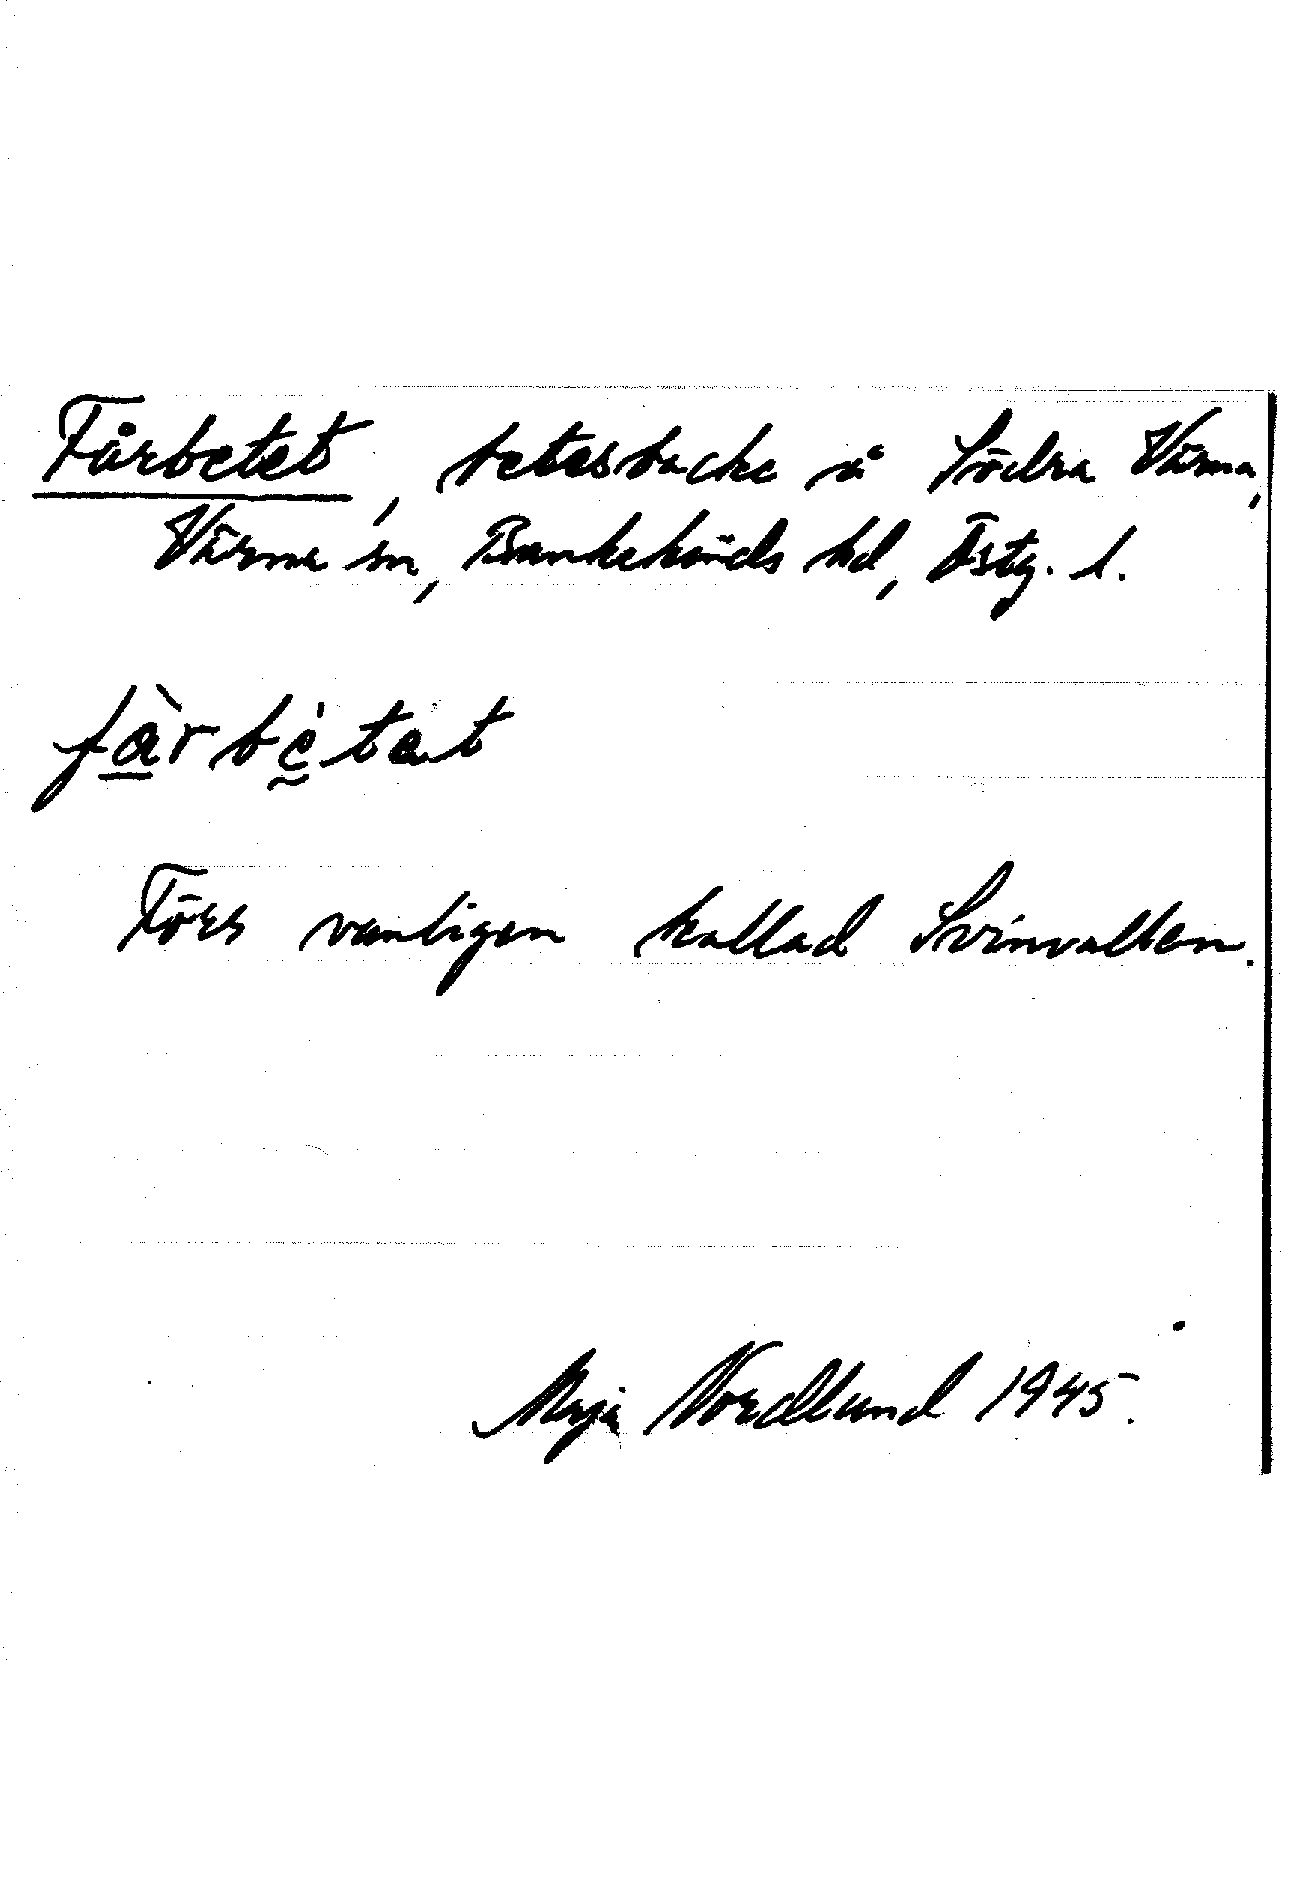 Fårbetet, betesbacke å Södra Värna,
Värna sn, Bankekinds hd, Östg. l.
fàrbètat
Förr vanligen kallad Svinvallen.
Maja Nordlund 1945.